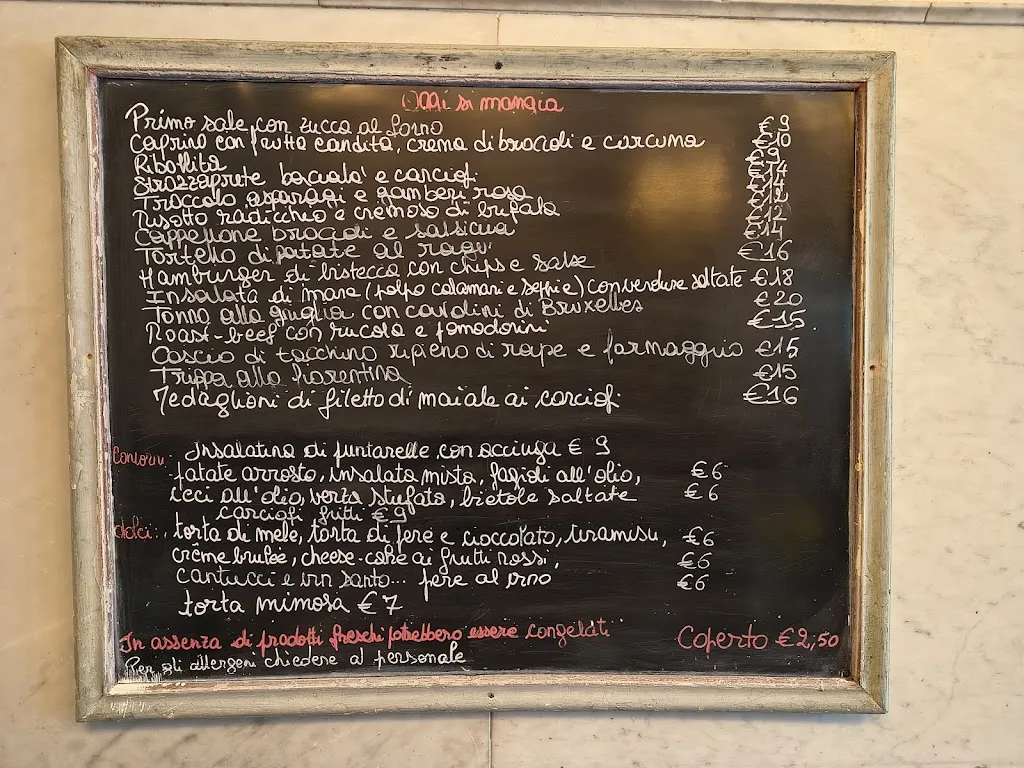 Oggi si mangia
Primo sale con zucca al forno €9
Caprino con frutta candita, crema di broccoli e curcuma €10
Ribollita
Strozzaprete baccala' e carciofi
Troccolo asparagi e gamberi rosa
Risotto radicchio e cremoso di bufala €12
Cappellone broccoli e salsiccia €14
Tortello di patate al ragu'
Hamburger di bistecca con chips e salse €16
Insalata di mare (polpo calamari e seppie) con verdure saltate €18
Tonno alla griglia con cavolini di Bruxelles €20
Roast-beef con rucola e pomodorini €15
Coscio di tacchino ripieno di rape e formaggio €15
Trippa alla fiorentina €15
Medaglioni di filetto di maiale ai carciofi €16
Contorni: Insalatina di puntarelle con acciuga € 9
patate arrosto, insalata mista, fagioli all'olio, €6
ceci all'olio, verza stufata, bietole saltate €6
carciofi fritti €9
dolci: torta di mele, torta di pere e cioccolato, tiramisu, €6
creme brulée, cheese-cake ai frutti rossi, €6
cantucci e vin santo... pere al vino €6
torta mimosa €7
In assenza di prodotti freschi potrebbero essere congelati Coperto €2,50
Per gli allergeni chiedere al personale